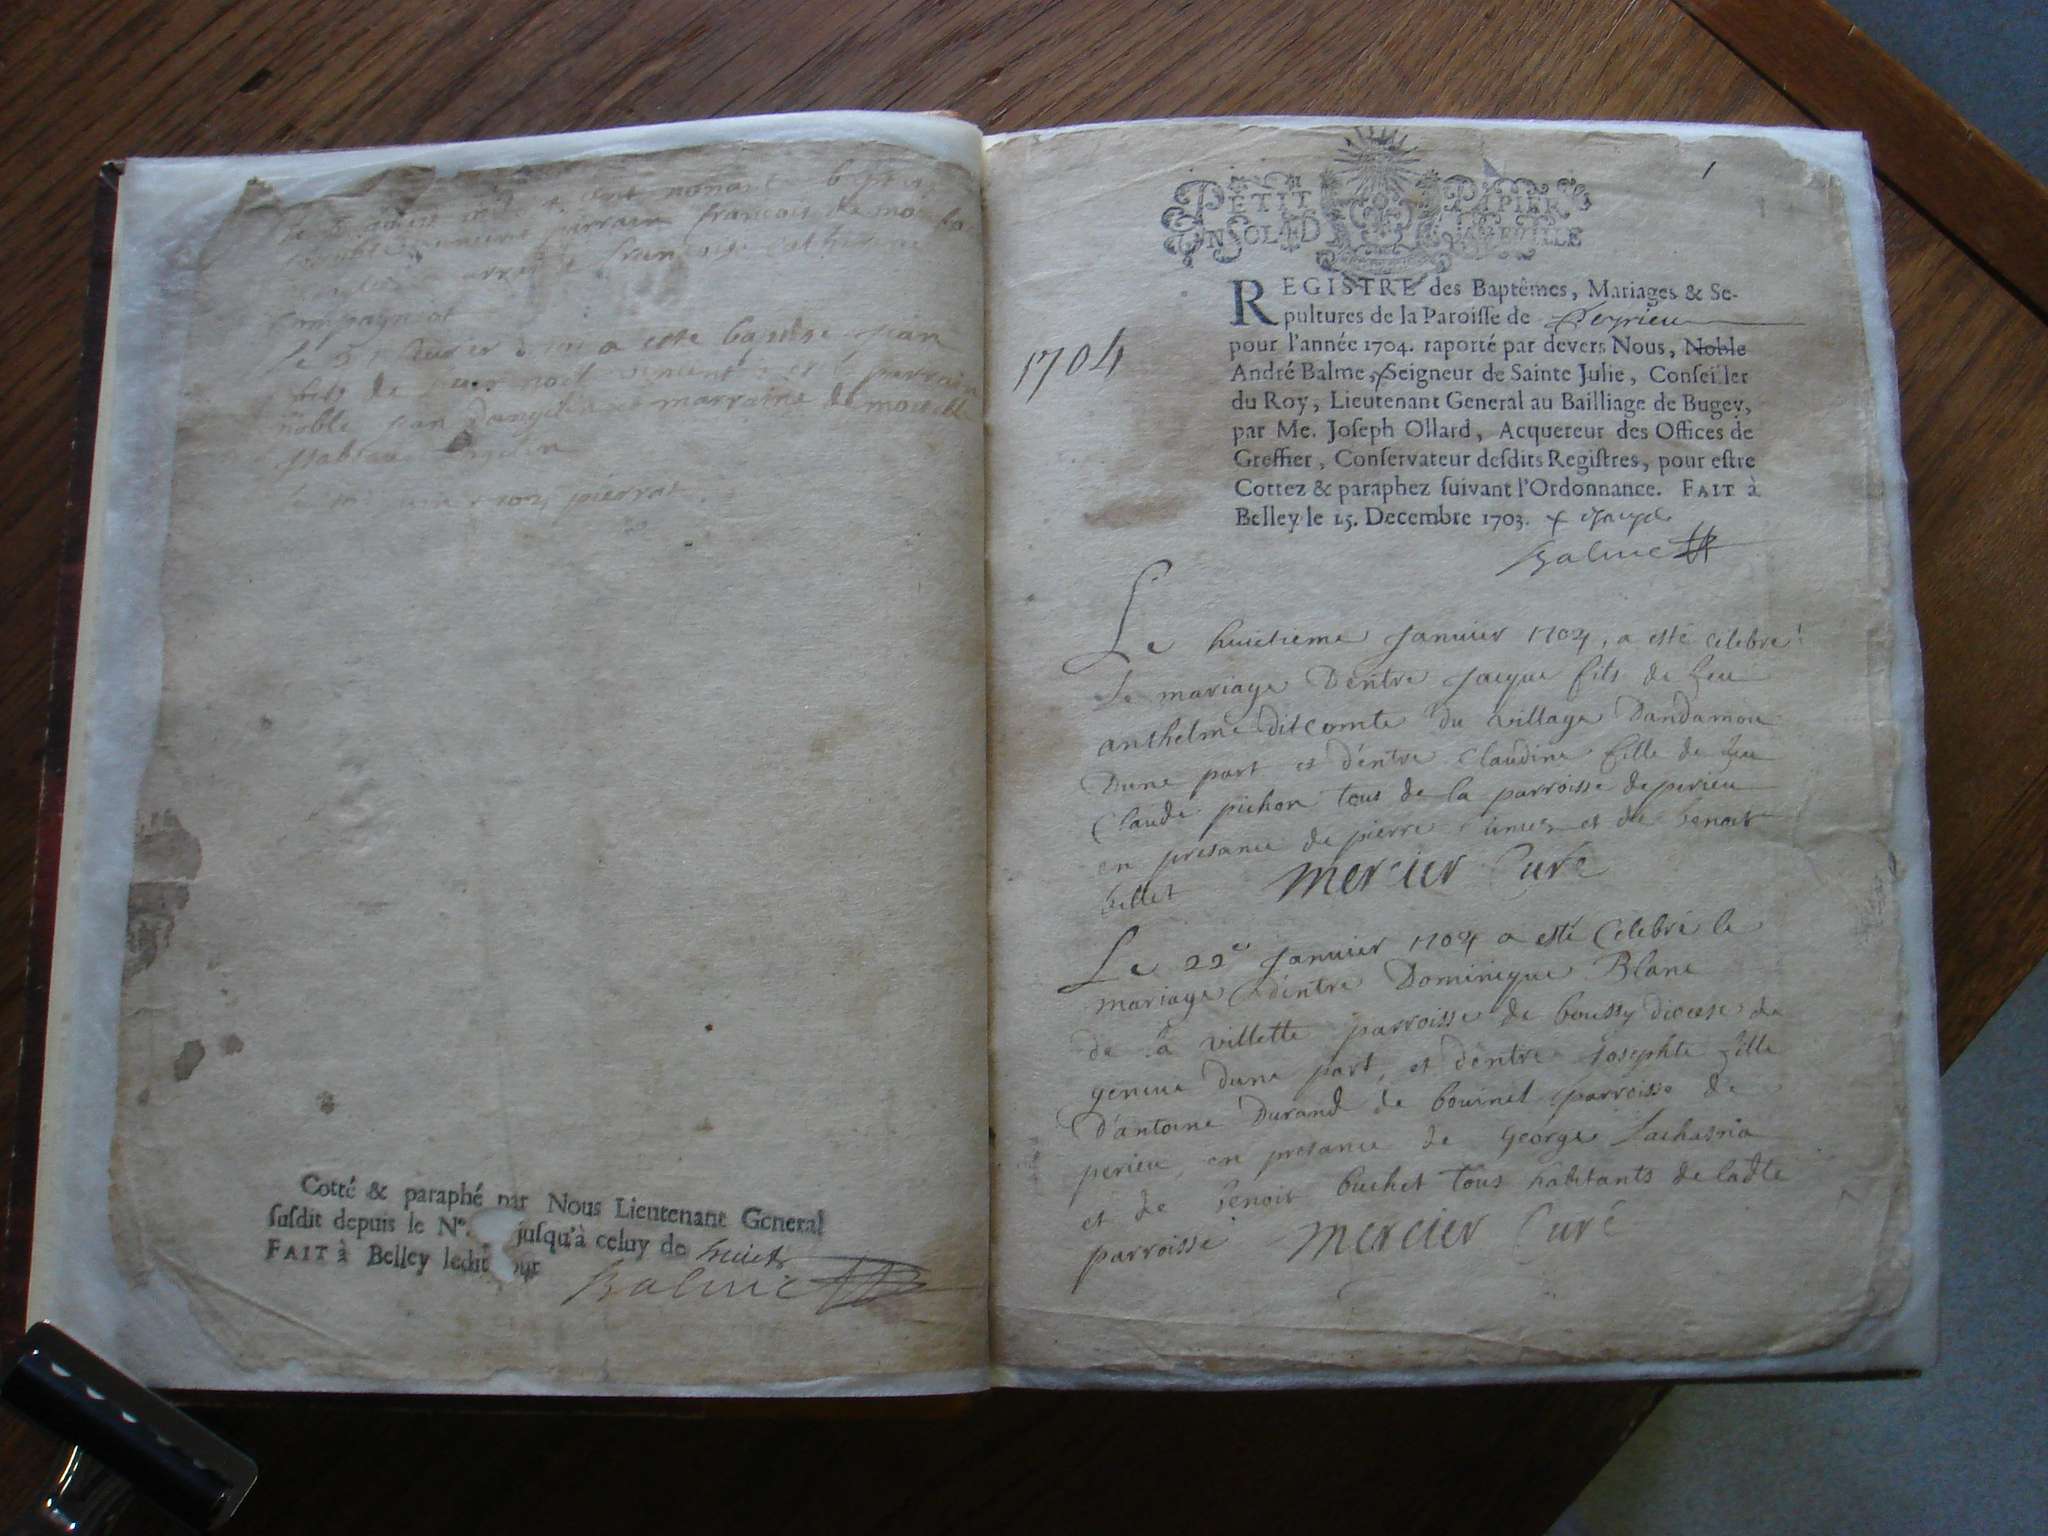 parrain francois de
Compagniot
a este baptise jean
fils de noel vincent et parrain
noble jean marraine
pierrat
Cotté & paraphé par Nous Lieutenant General
susdit depuis le N°. jusqu'à celuy de huict
FAIT à Belley ledit
Balme
1
PETIT PAPIER
EN SOL D LA FEUILLE
1704
REGISTRE des Baptêmes, Mariages & Se-
pultures de la Paroisse de Peyrieu
pour l'année 1704. raporté par devers Nous, Noble
André Balme, Seigneur de Sainte Julie, Conseiller
du Roy, Lieutenant General au Bailliage de Bugey,
par Me. Joseph Ollard, Acquereur des Offices de
Greffier, Conservateur desdits Registres, pour estre
Cottez & paraphez suivant l'Ordonnance. FAIT à
Belley le 15. Decembre 1703.
Balme
Le huictieme Januier 1704, a esté celebré
le mariage Dentre Jacque fils de feu
anthelme dit comte du village Dandamou
Dune part et d'entre Claudine fille de feu
Claude pichon tous de la parroisse de perieu
en presance de pierre et de benoit
billet mercier Curé
Le 22e Januier 1704 a esté Celebré le
mariage d'entre Dominique Blanc
de la villette parroisse de boussy diocese de
geneue dune part, et d'entre Josephte fille
d'antoine Durand de bouinel parroisse de
perieu, en presance de George
et de benoit buchet tous habitants de ladte
parroisse mercier Curé